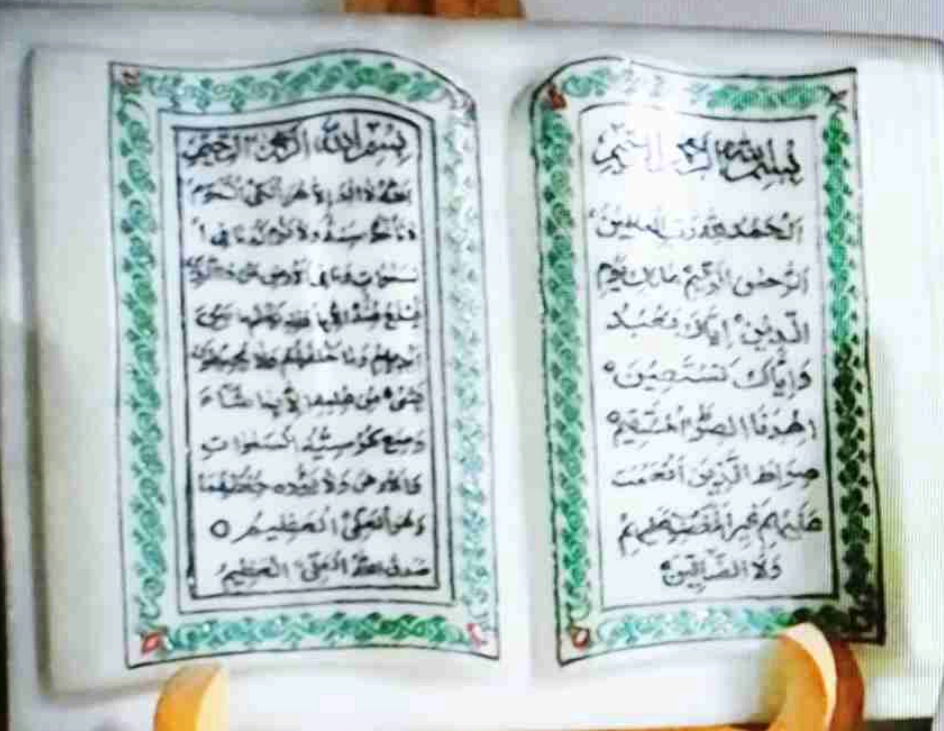 بسم الله الرحمن الرحيم
الحمد لله رب العلمين
الرحمن الرحيم مالك يوم
الدين إياك نعبد
وإياك نستعين
اهدنا الصرط المستقيم
صراط الذين أنعمت
عليهم غير المغضوب عليهم
ولا الضالين
بسم الله الرحمن الرحيم
الله لا اله إلا هو الحي القيوم
لا تأخذه سنة ولا نوم له ما في ا
لسموات وما في الأرض من ذا الذي
يشفع عنده إلا بإذنه يعلم ما بين
ايديهم وما خلفهم ولا يحيطون
بشيء من علمه إلا بما شاء
وسع كرسيه السموات
والأرض ولا يؤده حفظهما
وهو العلي العظيم
صدق الله العلي العظيم